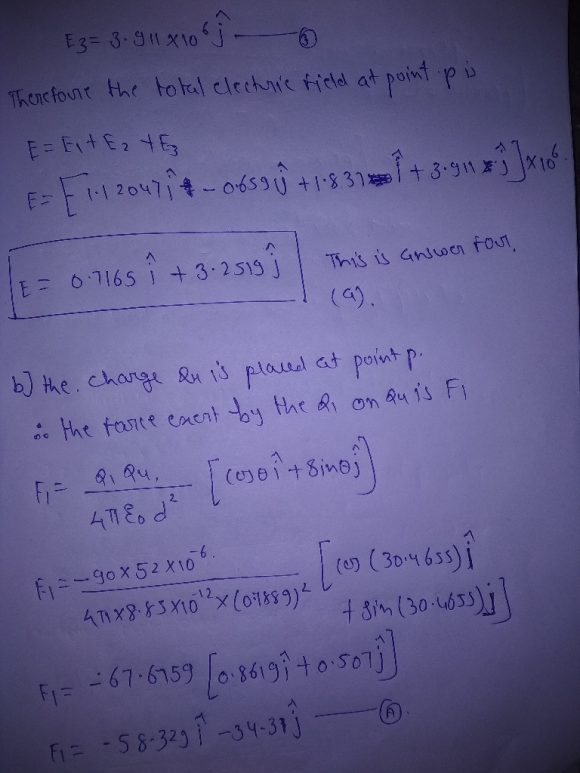 E3 = 3.911 x 10^6 ĵ —— ③
Therefore the total electric field at point p is
E = E1 + E2 + E3
E = [1.12047 î - 0.659 ĵ + 1.837 î + 3.911 ĵ] x 10^6
E = 0.7165 î + 3.2519 ĵ This is answer four.
(a).
b] the charge Q4 is placed at point p.
∴ the force exert by the Q1 on Q4 is F1
F1 = Q1 Q4 / 4πε0 d^2 [cosθ î + sinθ ĵ]
F1 = -90 x 52 x 10^-6 / 4π x 8.85 x 10^-12 x (0.7889)^2 [cos (30.4655) î
+ sin (30.4655) ĵ]
F1 = -67.6759 [0.8619 î + 0.507 ĵ]
F1 = -58.329 î - 34.31 ĵ —— Ⓐ.